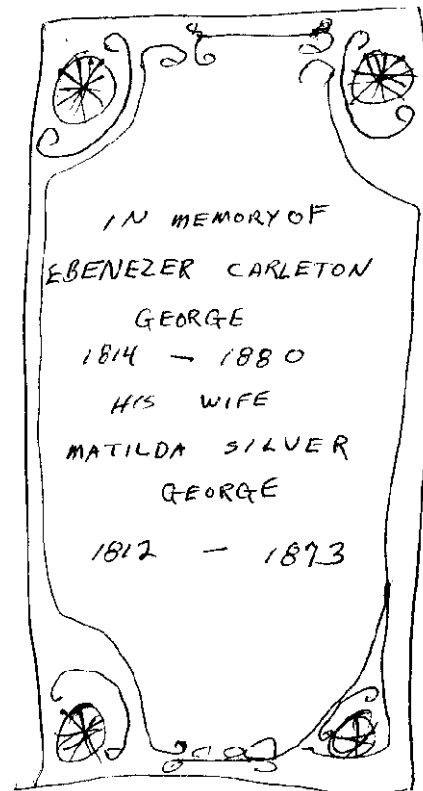 IN MEMORY OF
EBENEZER CARLETON
GEORGE
1814 — 1880
HIS WIFE
MATILDA SILVER
GEORGE
1812 — 1873